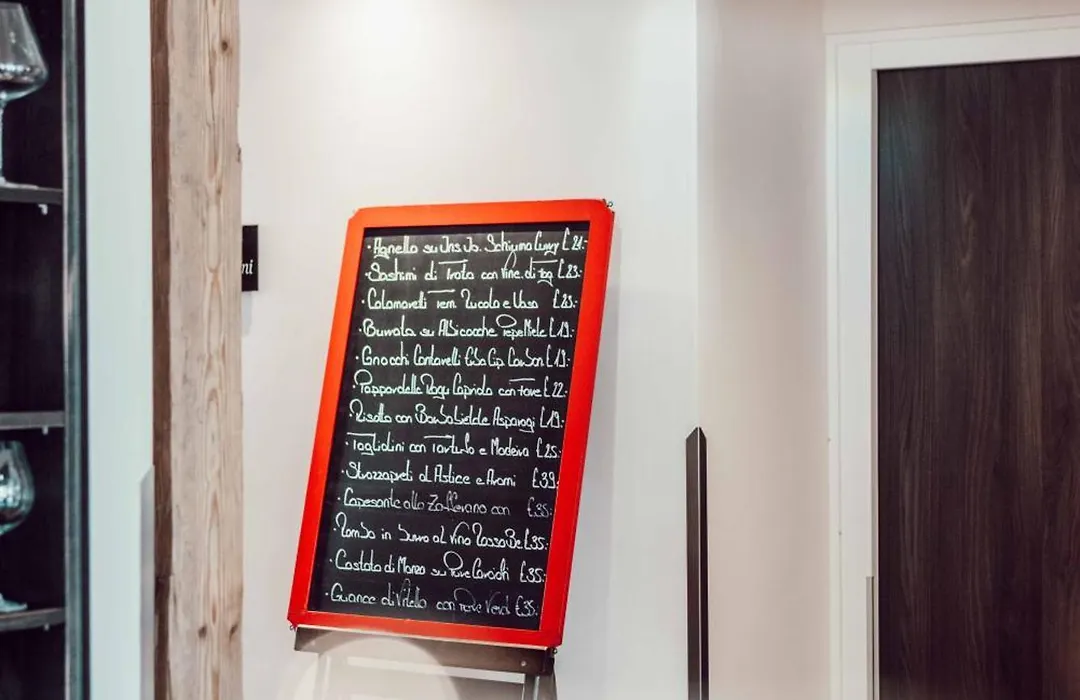 ni
· Agnello su Ins. Schiuma Curry £ 21.-
· Sashimi di Trota con Vine. di £23.-
· Calamaretti Tem. Rucola e £23.-
· Burrata su Albicocche Pepe Miele £19.-
· Gnocchi £19.-
· Pappardelle Ragu Capriolo con £22.-
· Risotto con Barbabietole Asparagi £19.-
· Tagliolini con Tartufo e Madeira £25.-
· Strozzapreti al Astice e Aromi £39.
· Capesante allo Zafferano con £35.-
· Rombo in burro al Vino Rosso Be £35.-
· Costata di Manzo su Pure Carciofi £35.-
· Guance di Vitello con Pepe Verde £35.-